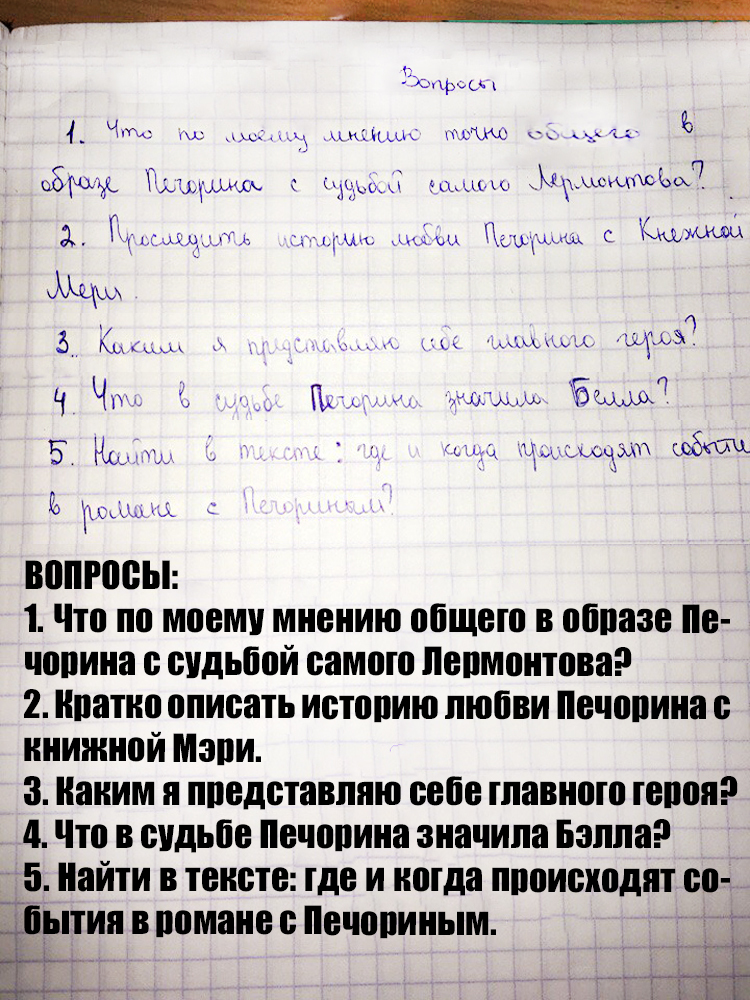 Вопросы
1. Что по моему мнению точно общего в
образе Печорина с судьбой самого Лермонтова?
2. Проследить историю любви Печорина с Княжной
Мери.
3. Каким я представляю себе главного героя?
4. Что в судьбе Печорина значила Белла?
5. Найти в тексте: где и когда происходят событи
в романе с Печориным?
ВОПРОСЫ:
1. Что по моему мнению общего в образе Пе-
чорина с судьбой самого Лермонтова?
2. Кратко описать историю любви Печорина с
книжной Мэри.
3. Каким я представляю себе главного героя?
4. Что в судьбе Печорина значила Бэлла?
5. Найти в тексте: где и когда происходят со-
бытия в романе с Печориным.